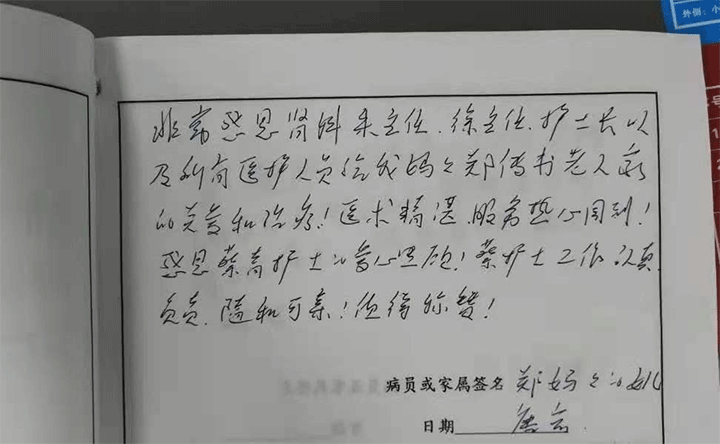 外侧：小
非常感恩肾内科朱主任、徐主任、护士长以
及所有医护人员给我妈妈郑传书老人家
的关爱和治疗！医术精湛、服务热心周到！
感恩蔡青护士的尽心照顾！蔡护士工作认真
负责、随和可亲！值得称赞！
病员或家属签名 郑妈妈的女儿
日期